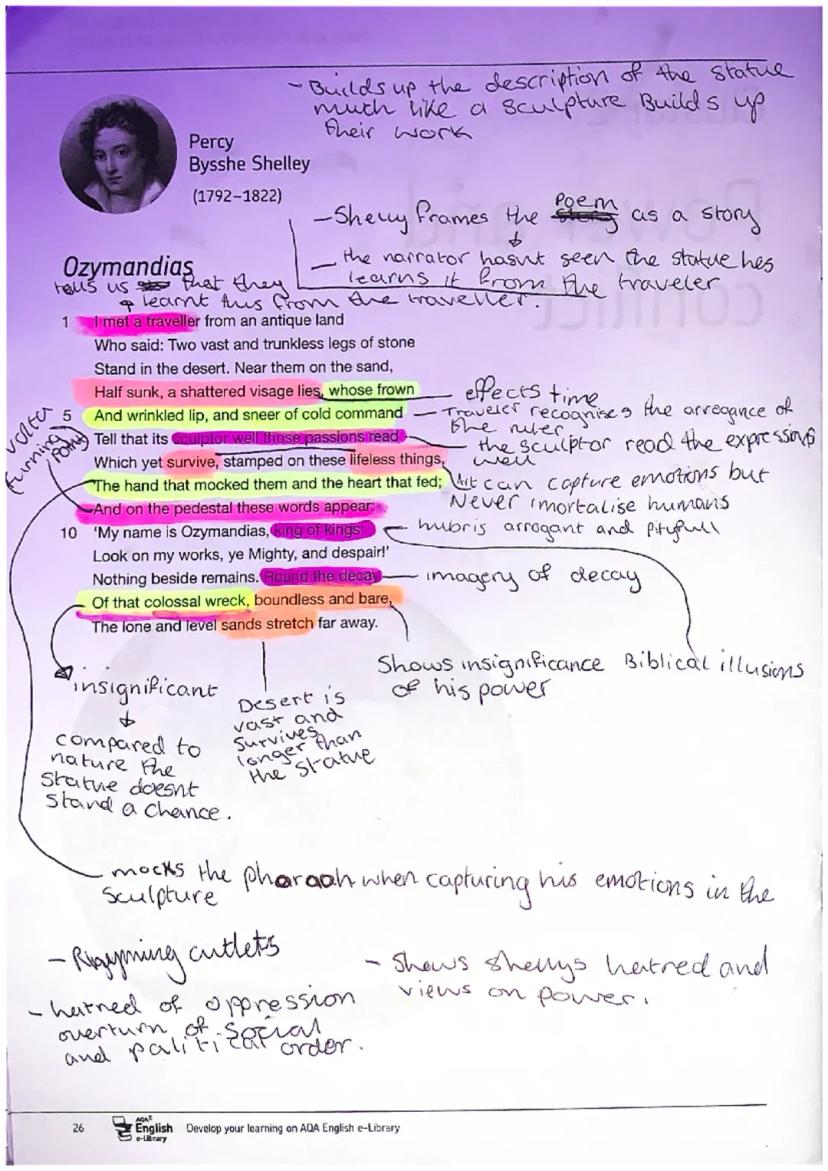 - Builds up the description of the statue
much like a sculpture Builds up
their work
Percy
Bysshe Shelley
(1792–1822)
Poem
- Shelly frames the story as a story
- the narrator hasnt seen the statue hes
learns it from the traveler
Ozymandias
tells us that they
learnt this from the traveller.
1 I met a traveller from an antique land
Who said: Two vast and trunkless legs of stone
Stand in the desert. Near them on the sand,
Half sunk, a shattered visage lies, whose frown
effects time
5 And wrinkled lip, and sneer of cold command
Traveler recognises the arrogance of
the ruler
volta
(turning
point)
Tell that its sculptor well those passions read
the sculptor read the expressions
well
Which yet survive, stamped on these lifeless things,
The hand that mocked them and the heart that fed;
Art can capture emotions but
Never imortalise humans
And on the pedestal these words appear:
10 'My name is Ozymandias, king of kings:
hubris arrogant and pityfull
Look on my works, ye Mighty, and despair!'
Nothing beside remains. Round the decay
imagery of decay
Of that colossal wreck, boundless and bare,
The lone and level sands stretch far away.
Shows insignificance
of his power
Biblical illusions
insignificant
compared to
nature the
statue doesnt
stand a chance.
Desert is
vast and
survives
longer than
the statue
mocks the pharaoh when capturing his emotions in the
sculpture
- cutlets
- Shows shellys hatred and
views on power.
- hatred of oppression
overturn of social
and political order.
26 AQA English e-Library Develop your learning on AQA English e-Library